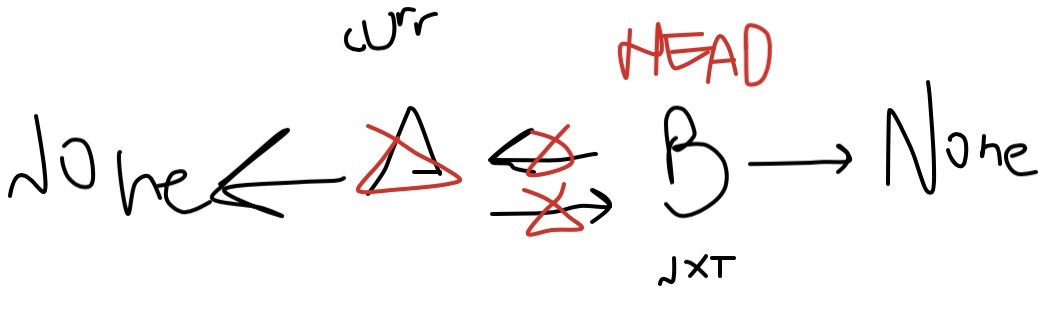 curr
HEAD
None A B None
NXT